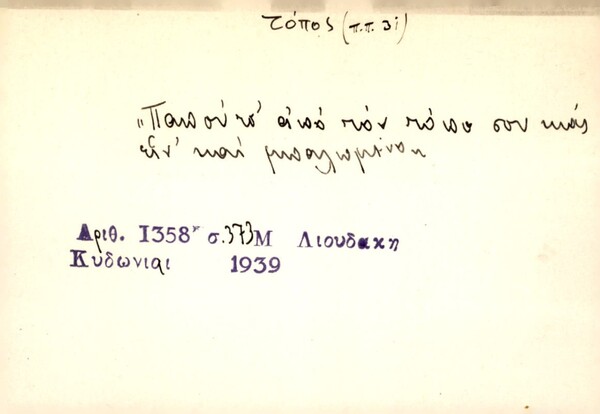 τόπος (π.π. 3ι)
"Παπούτσ' ἀπό τόν τόπο σου κιάς
εἶν' καί μπαλωμένο"
Αριθ. 1358Γ σ. 373 Μ Λιουδακη
Κυδωνιαι 1939